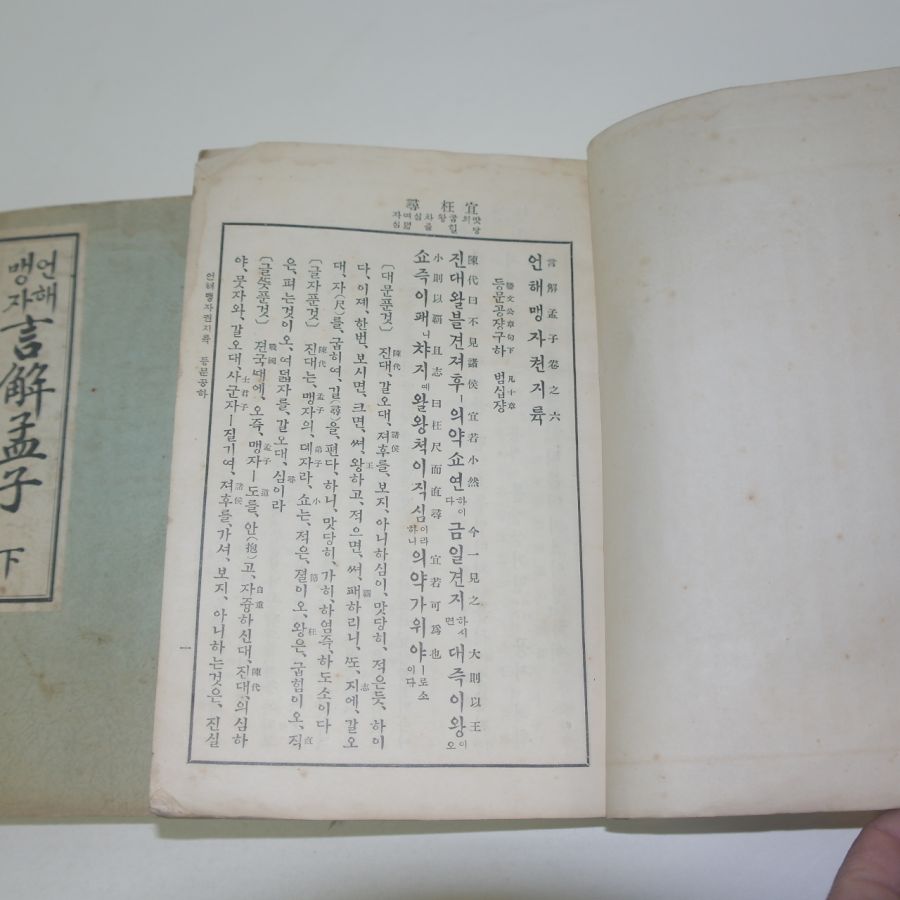 언해
맹자
言解孟子 下
宜 枉 尋
맛당의 굽힐왕 차질심
言解孟子卷之六
언해맹자권지륙
滕文公章句下 凡十章
등문공쟝구하 범십쟝
陳代曰不見諸侯 宜若小然 今一見之 大則以王
진대왈블견져후ㅣ의약쇼연하이다 금일견지하시면 대즉이왕이오
小則以霸 且志曰枉尺而直尋 宜若可爲也
쇼즉이패니 챠지예왈왕쳑이직심이라하니 의약가위야ㅣ로소이다
〔대문푼것〕 진대、갈오대、져후를、보지、아니하심이、맛당히、적은듯、하이
다、이졔、한번、보시면、크면、써、왕하고、적으면、써、패하리니、또、지에、갈오
대、자(尺)를、굽히여、길(尋)을、편다、하니、맛당히、가히、하염즉、하도소이다
〔글자푼것〕 진대는、맹자의、뎨자라、쇼는、적은、졀이오、왕은、굽힘이오、직
은、펴는것이오、여덟자를、갈오대、심이라
〔글뜻푼것〕 젼국때에、오즉、맹자ㅣ도를、안(抱)고、자즁하신대、진대、의심하
야、뭇자와、갈오대、사군자ㅣ질기여、져후를、가셔、보지、아니하는것은、진실
언해맹자권지륙 등문공하
一